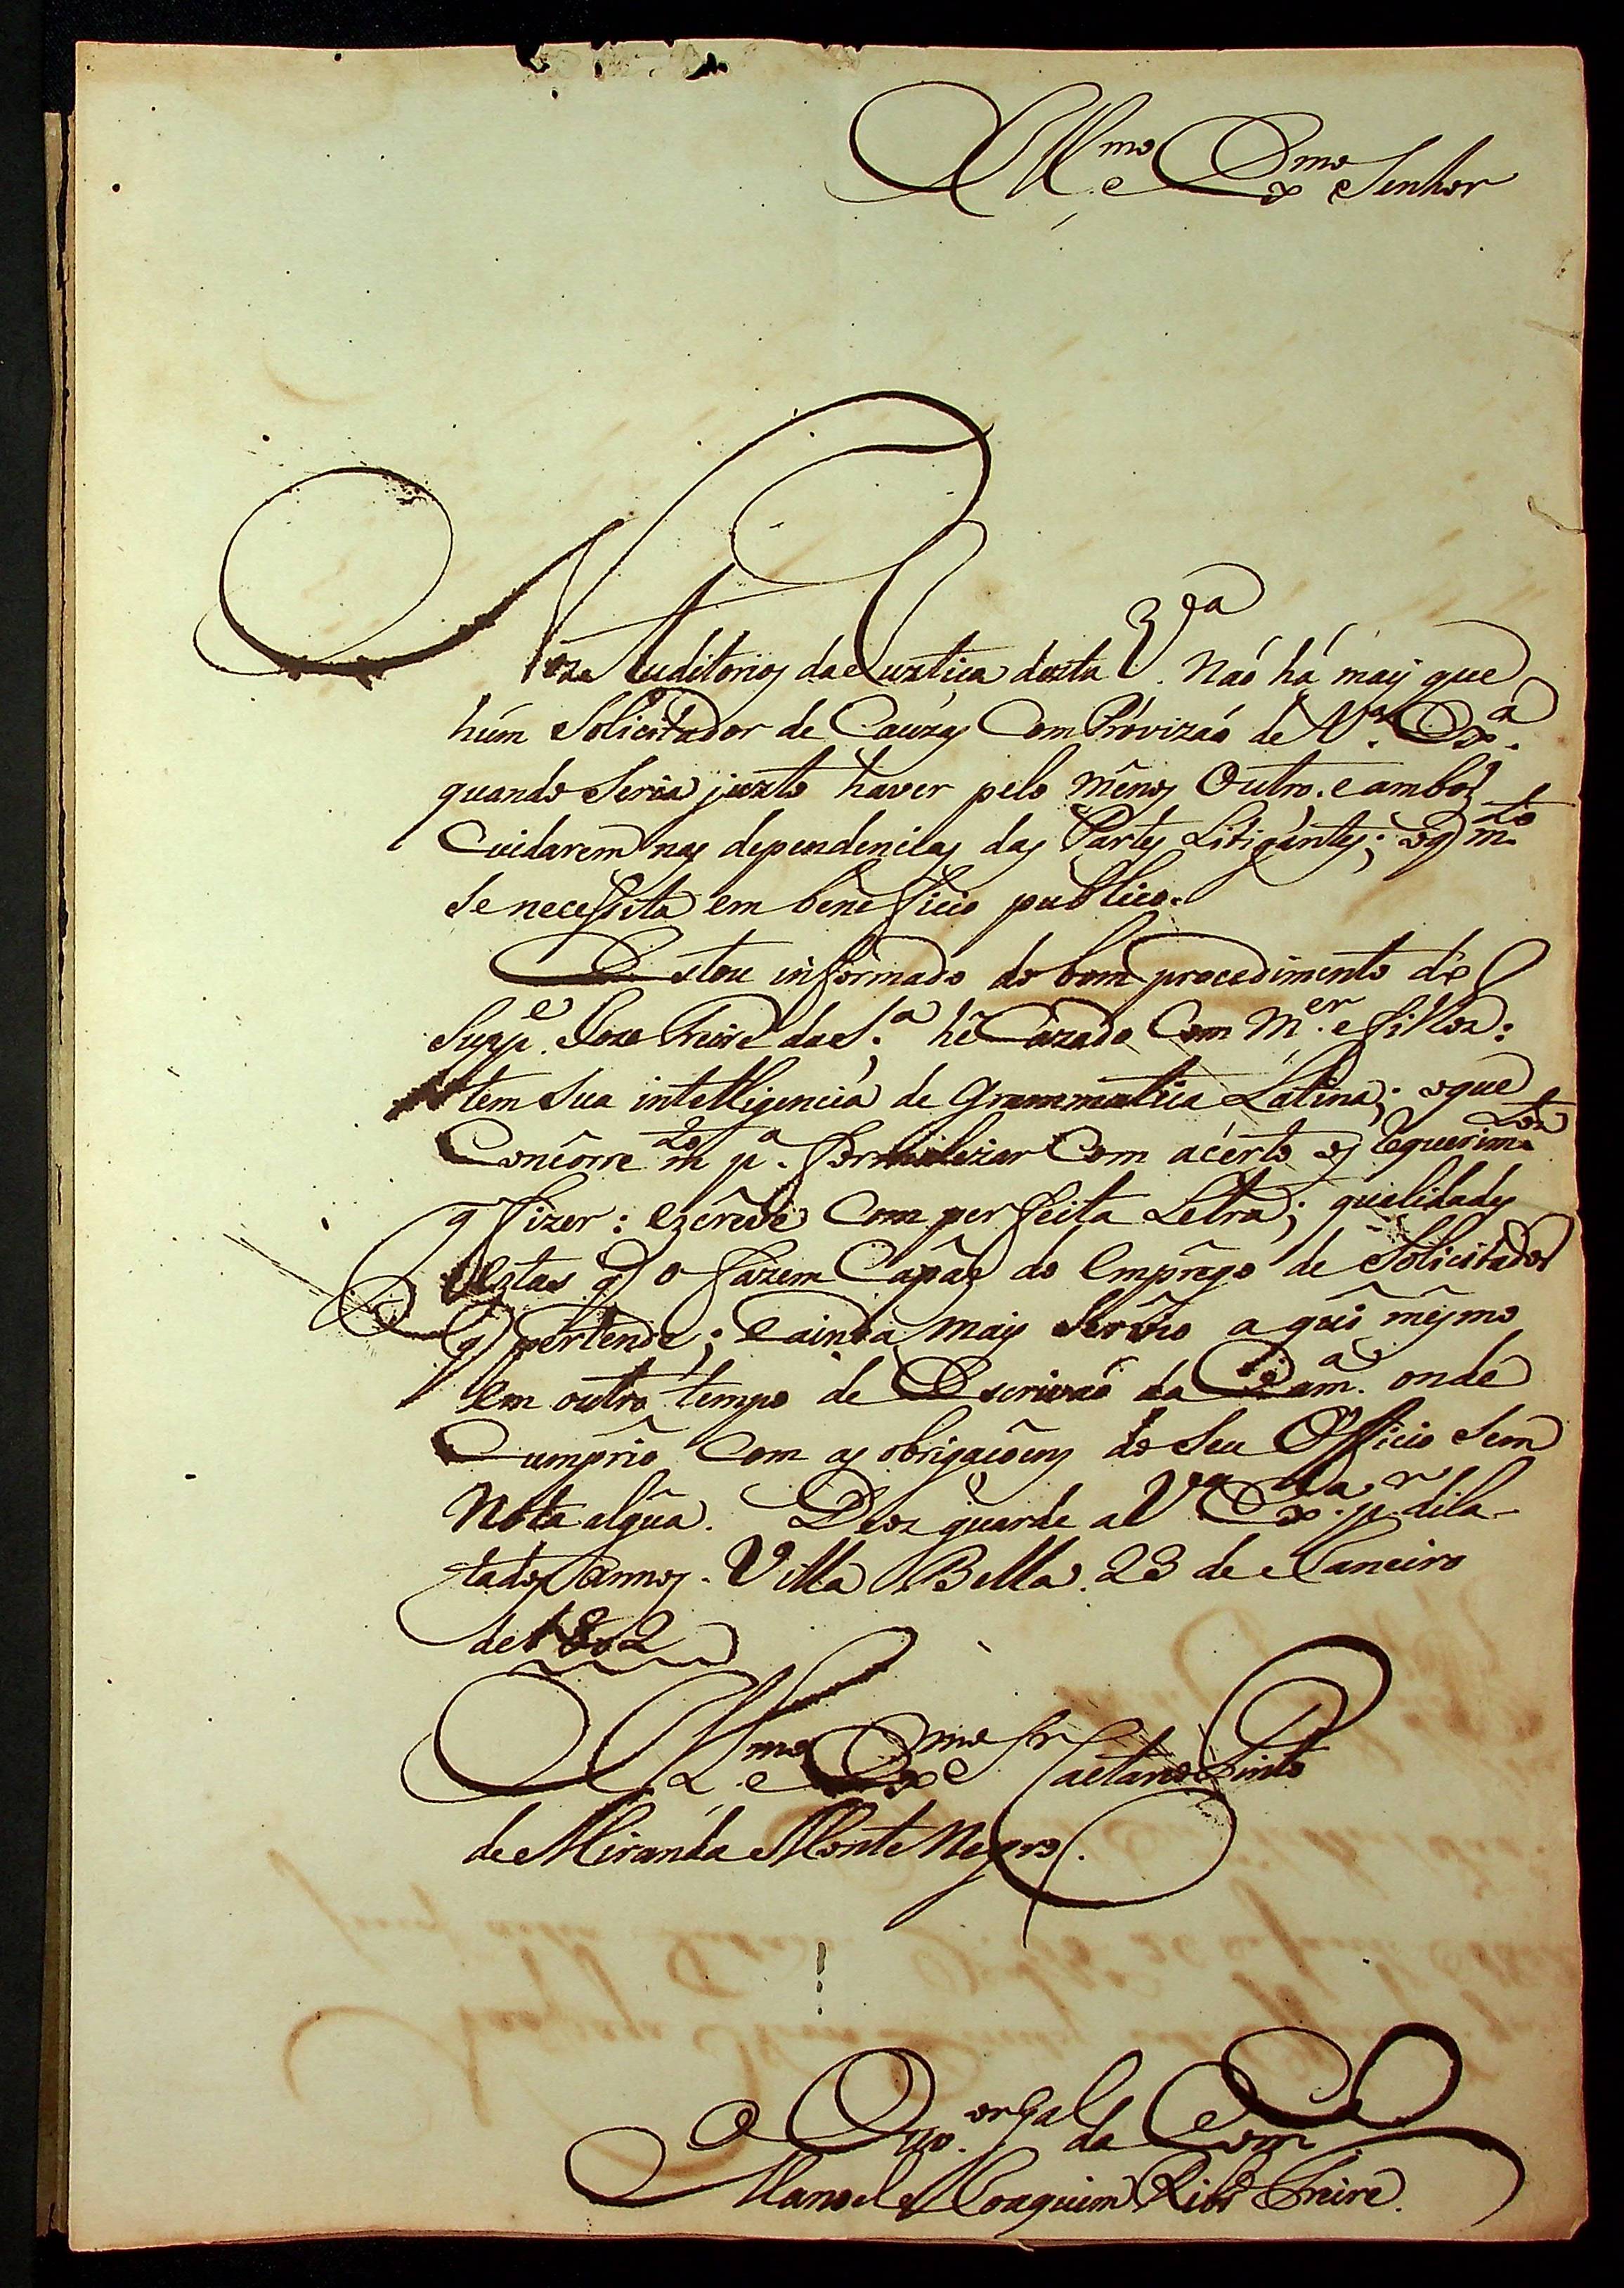 Ill.mo e Ex.mo Senhor
Nos Auditorios da Justiça desta V.a Não há mais que
hum Solicitador de Cauzas Com Provizaõ de V.a Ex.a
quando Seria justo haver pelo menos Outro. e ambos
Cuidarem nas dependencias das Partes Litigantes; oq m.to
se necessita em beneficio publico.
Estou informado do bom procedimento do
Supp.e Joze da S.a hé Cazado Com M.er e filhos:
tem sua intelligencia de Grammatica Latina; oque
Concôrre m.to p.a formalizar Com acérto os Requerim.tos
q fizer: escreve Com perfeita Letra; qualidades
estas q o fazem Capaz do Emprêgo de Solicitador
q pertende; e ainda mais Servio aqui mêsmo
em outro tempo de Escrivaõ da Cam.a onde
Cumprio Com as obrigaçoens do Seu Officio Sem
Nota algũa. Deos guarde a V.a Ex.a p.r dila-
tados annos. Villa Bella. 23 de Janeiro
de 1802
Ill.mo e Ex.mo Snr Caetano Pinto
de Miranda Monte Negro.
O Ouv.or g.al da Com.ca
Manoel Joaquim Ribr.o Freire.